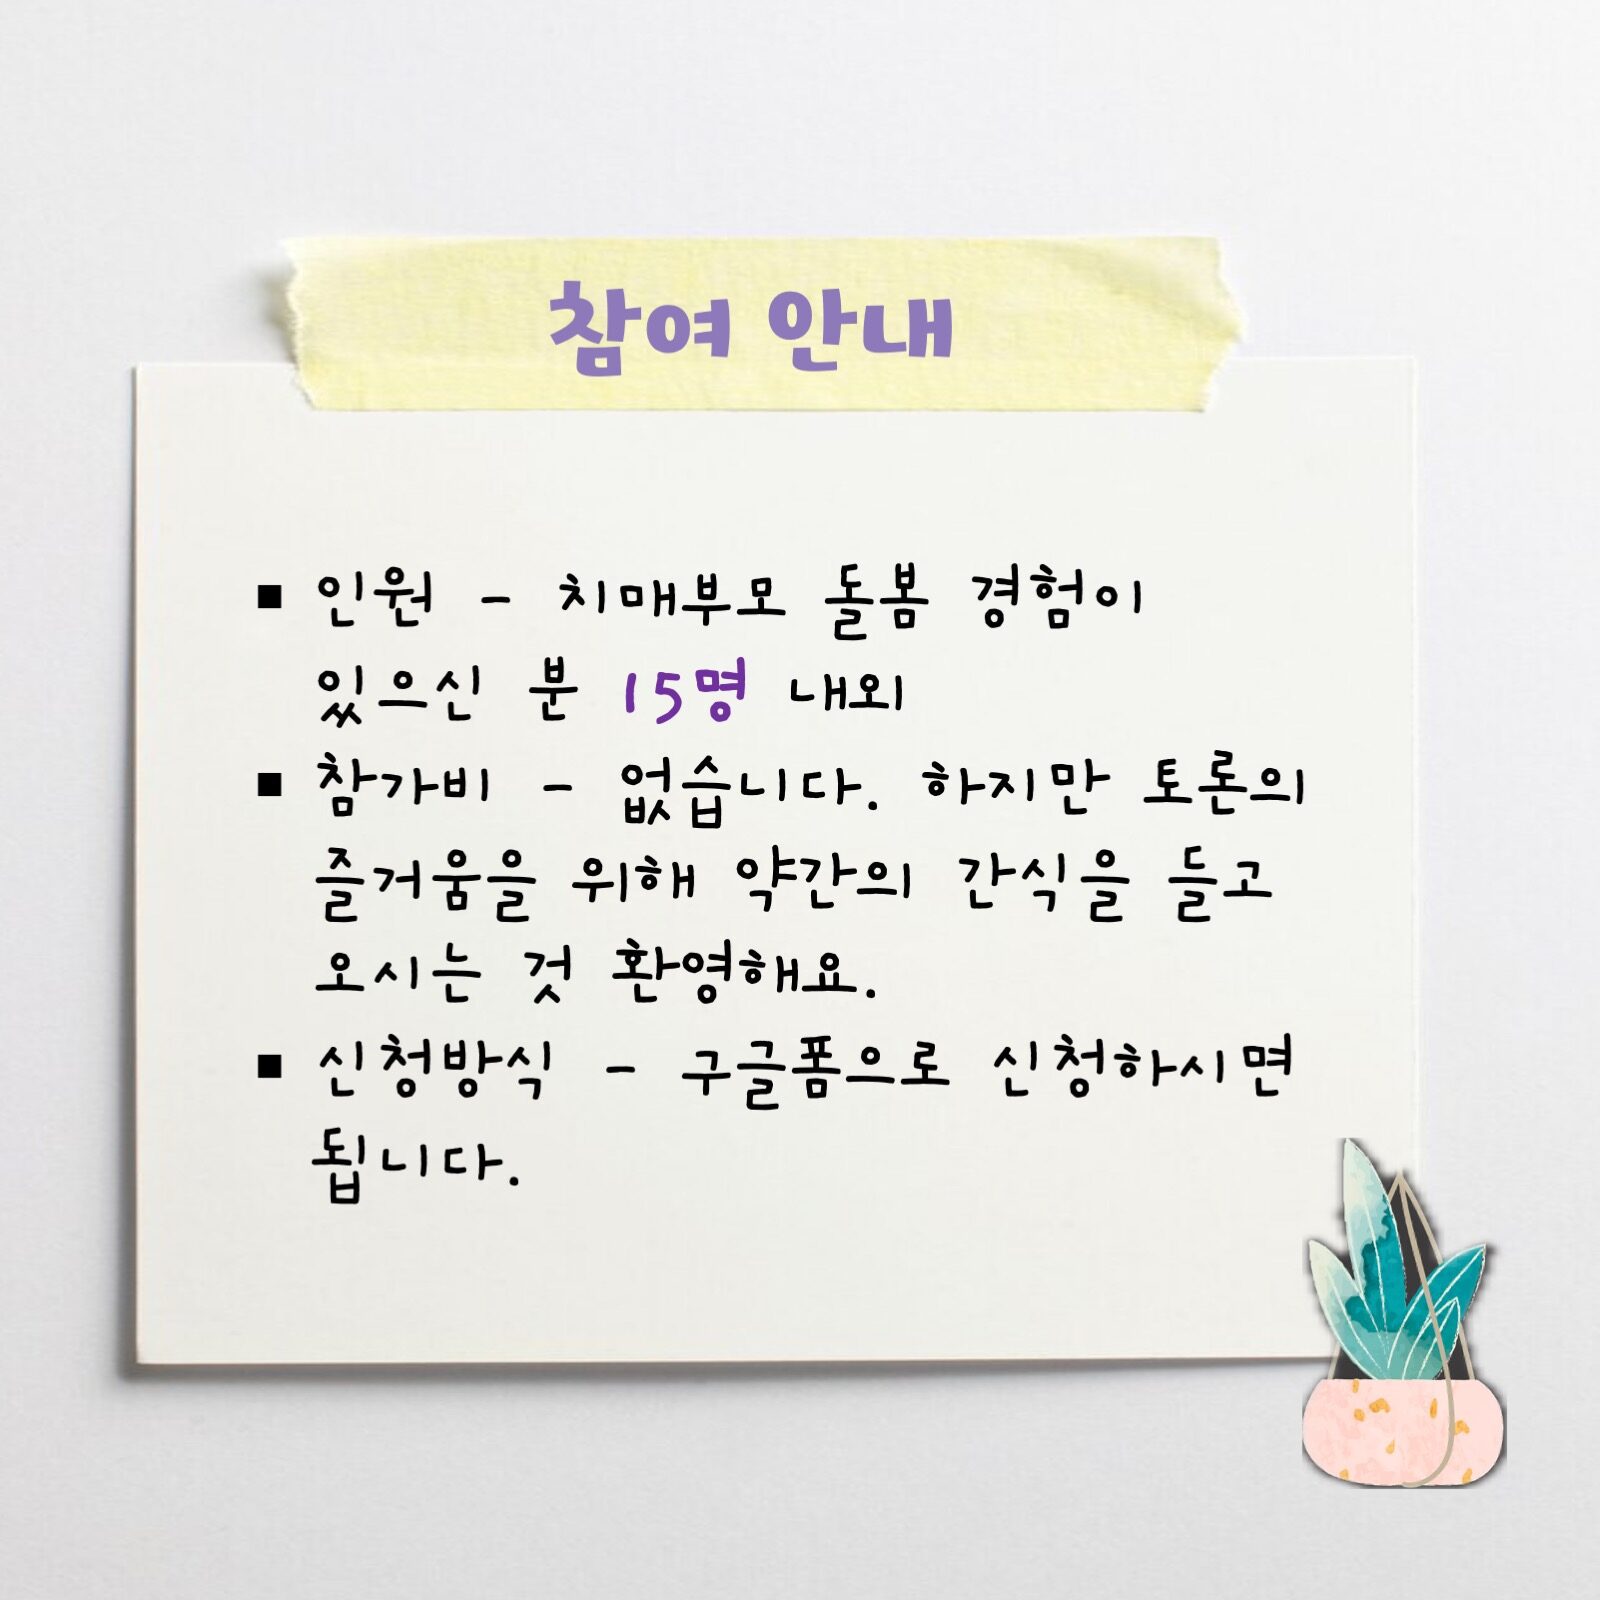 참여 안내
▪ 인원 - 치매부모 돌봄 경험이
있으신 분 15명 내외
▪ 참가비 - 없습니다. 하지만 토론의
즐거움을 위해 약간의 간식을 들고
오시는 것 환영해요.
▪ 신청방식 - 구글폼으로 신청하시면
됩니다.